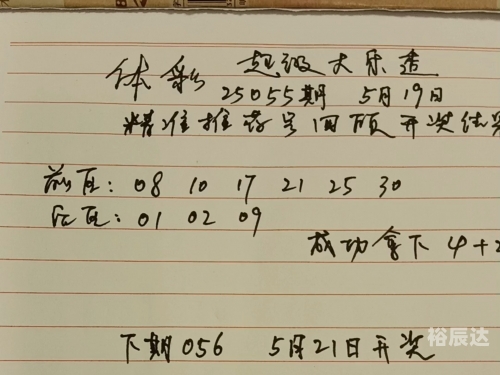 体彩 超级大乐透
25055期 5月19日
精准推荐号回顾开奖结果
前区：08 10 17 21 25 30
后区：01 02 09
成功拿下 4+2
下期056 5月21日开奖
裕辰达